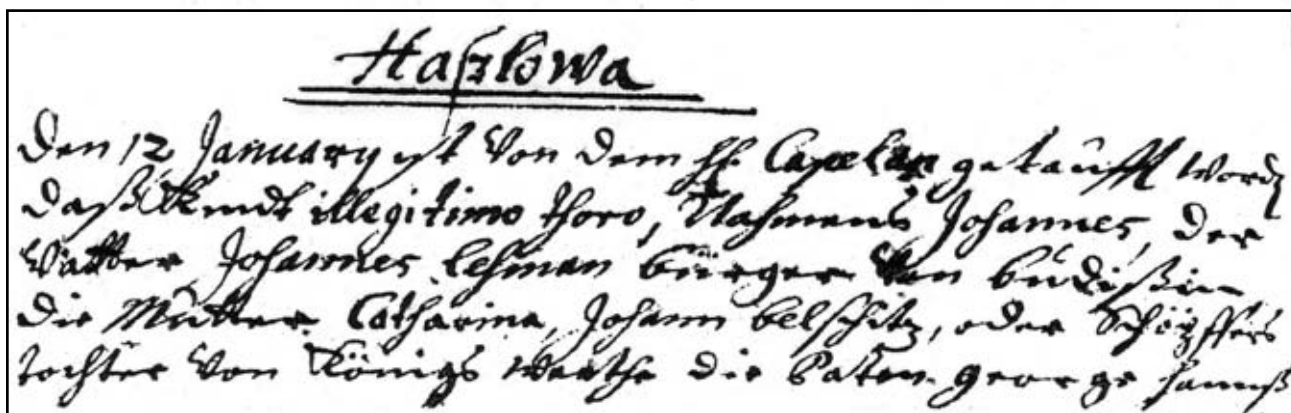 Haszlowa
Den 12 January ist von dem H. Capelan getaufft word
daß Kindt illegitimo thoro, Nahmens Johannes, der
Vatter Johannes Lehman bürger von budißin
die Mutter Catharina, Johann belschitz, oder Schöpffers
tochter von Königs wartha die Paten george hannß